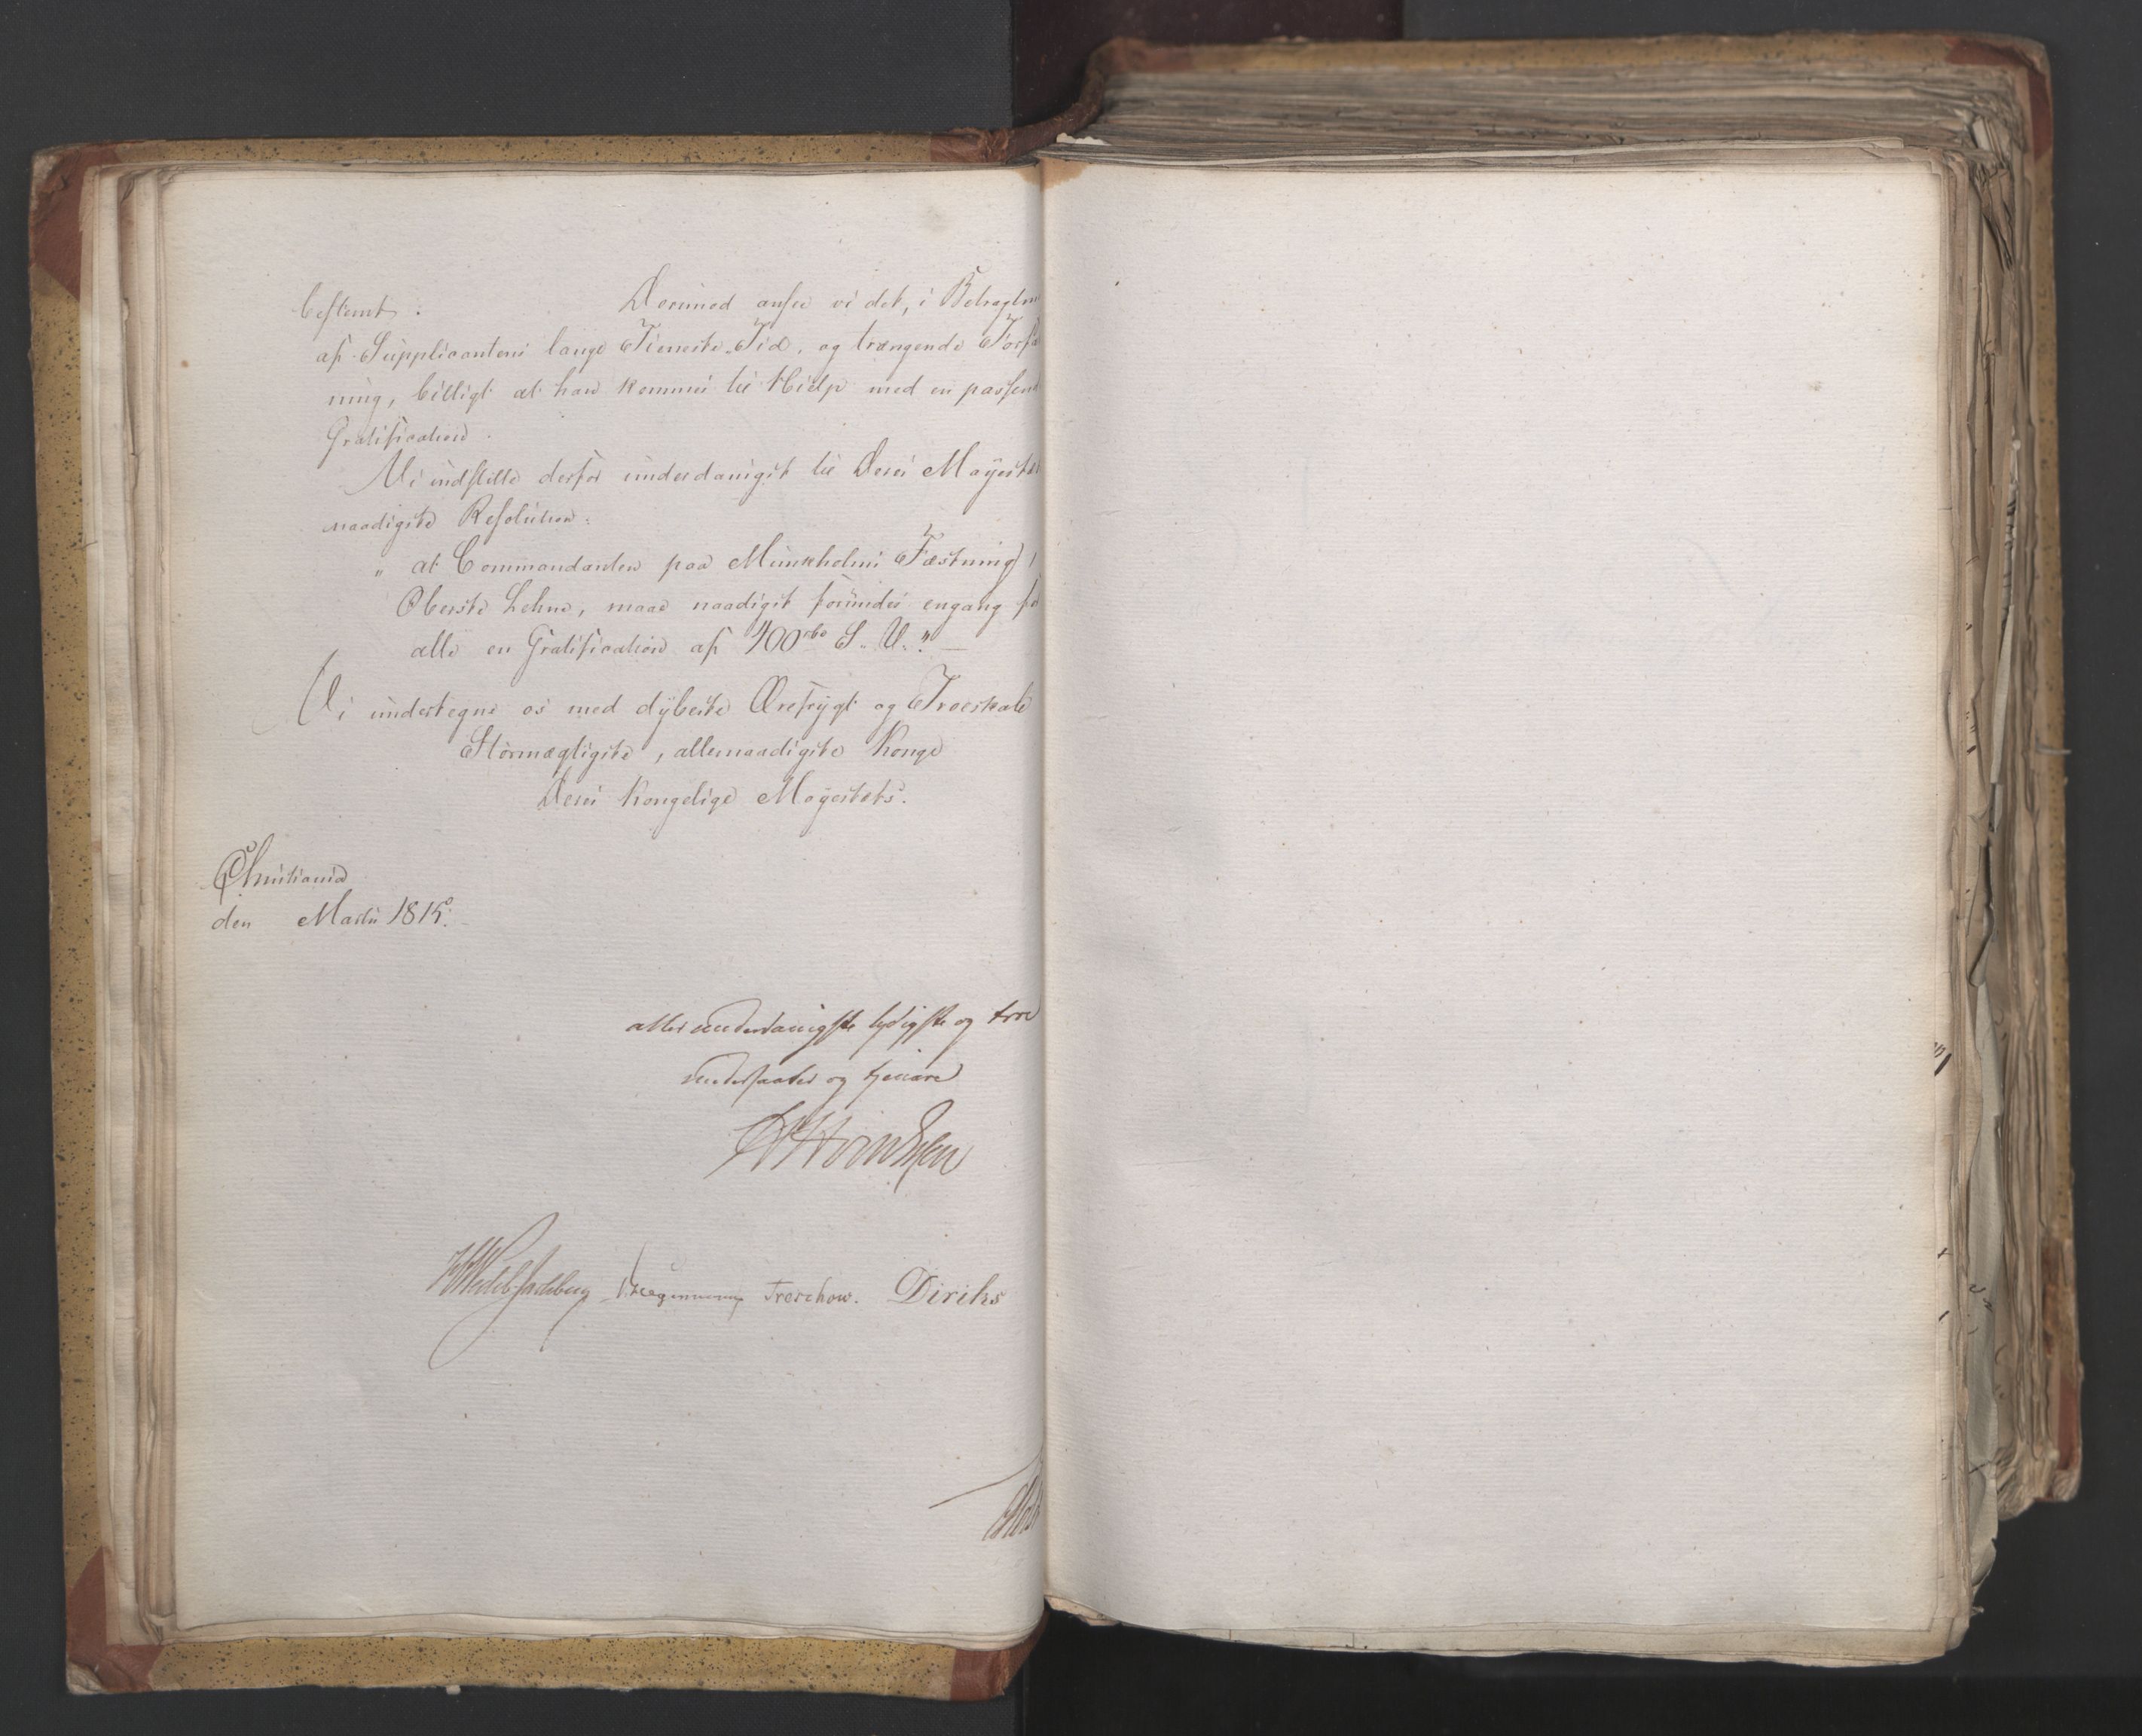 bestemt. Derimod ansee vi det, i Betragtn
af Supplicantens lange Tieneste-Tid, og trængende Forfat
ning, billigt at han kommes til Hielp med en passend
Gratification.
Vi indstille derfor underdanigst til Deres Mayestæts
naadigste Resolution:
" at Commandanten paa Munkholms Fæstning,
Oberste Lehne, maae naadigst forundes engang for
alle en Gratification af 400 rbd S. V."
Vi undertegne os med dybeste Ærefrygt og Troeskab
Stormægtigste, allernaadigste Konge
Deres Kongelige Mayestæts.
Christiania
den Martii 1815.
allerunderdanigste lydigste og troe
undersaatter og tjenere
Hegermann Treschow. Diriks